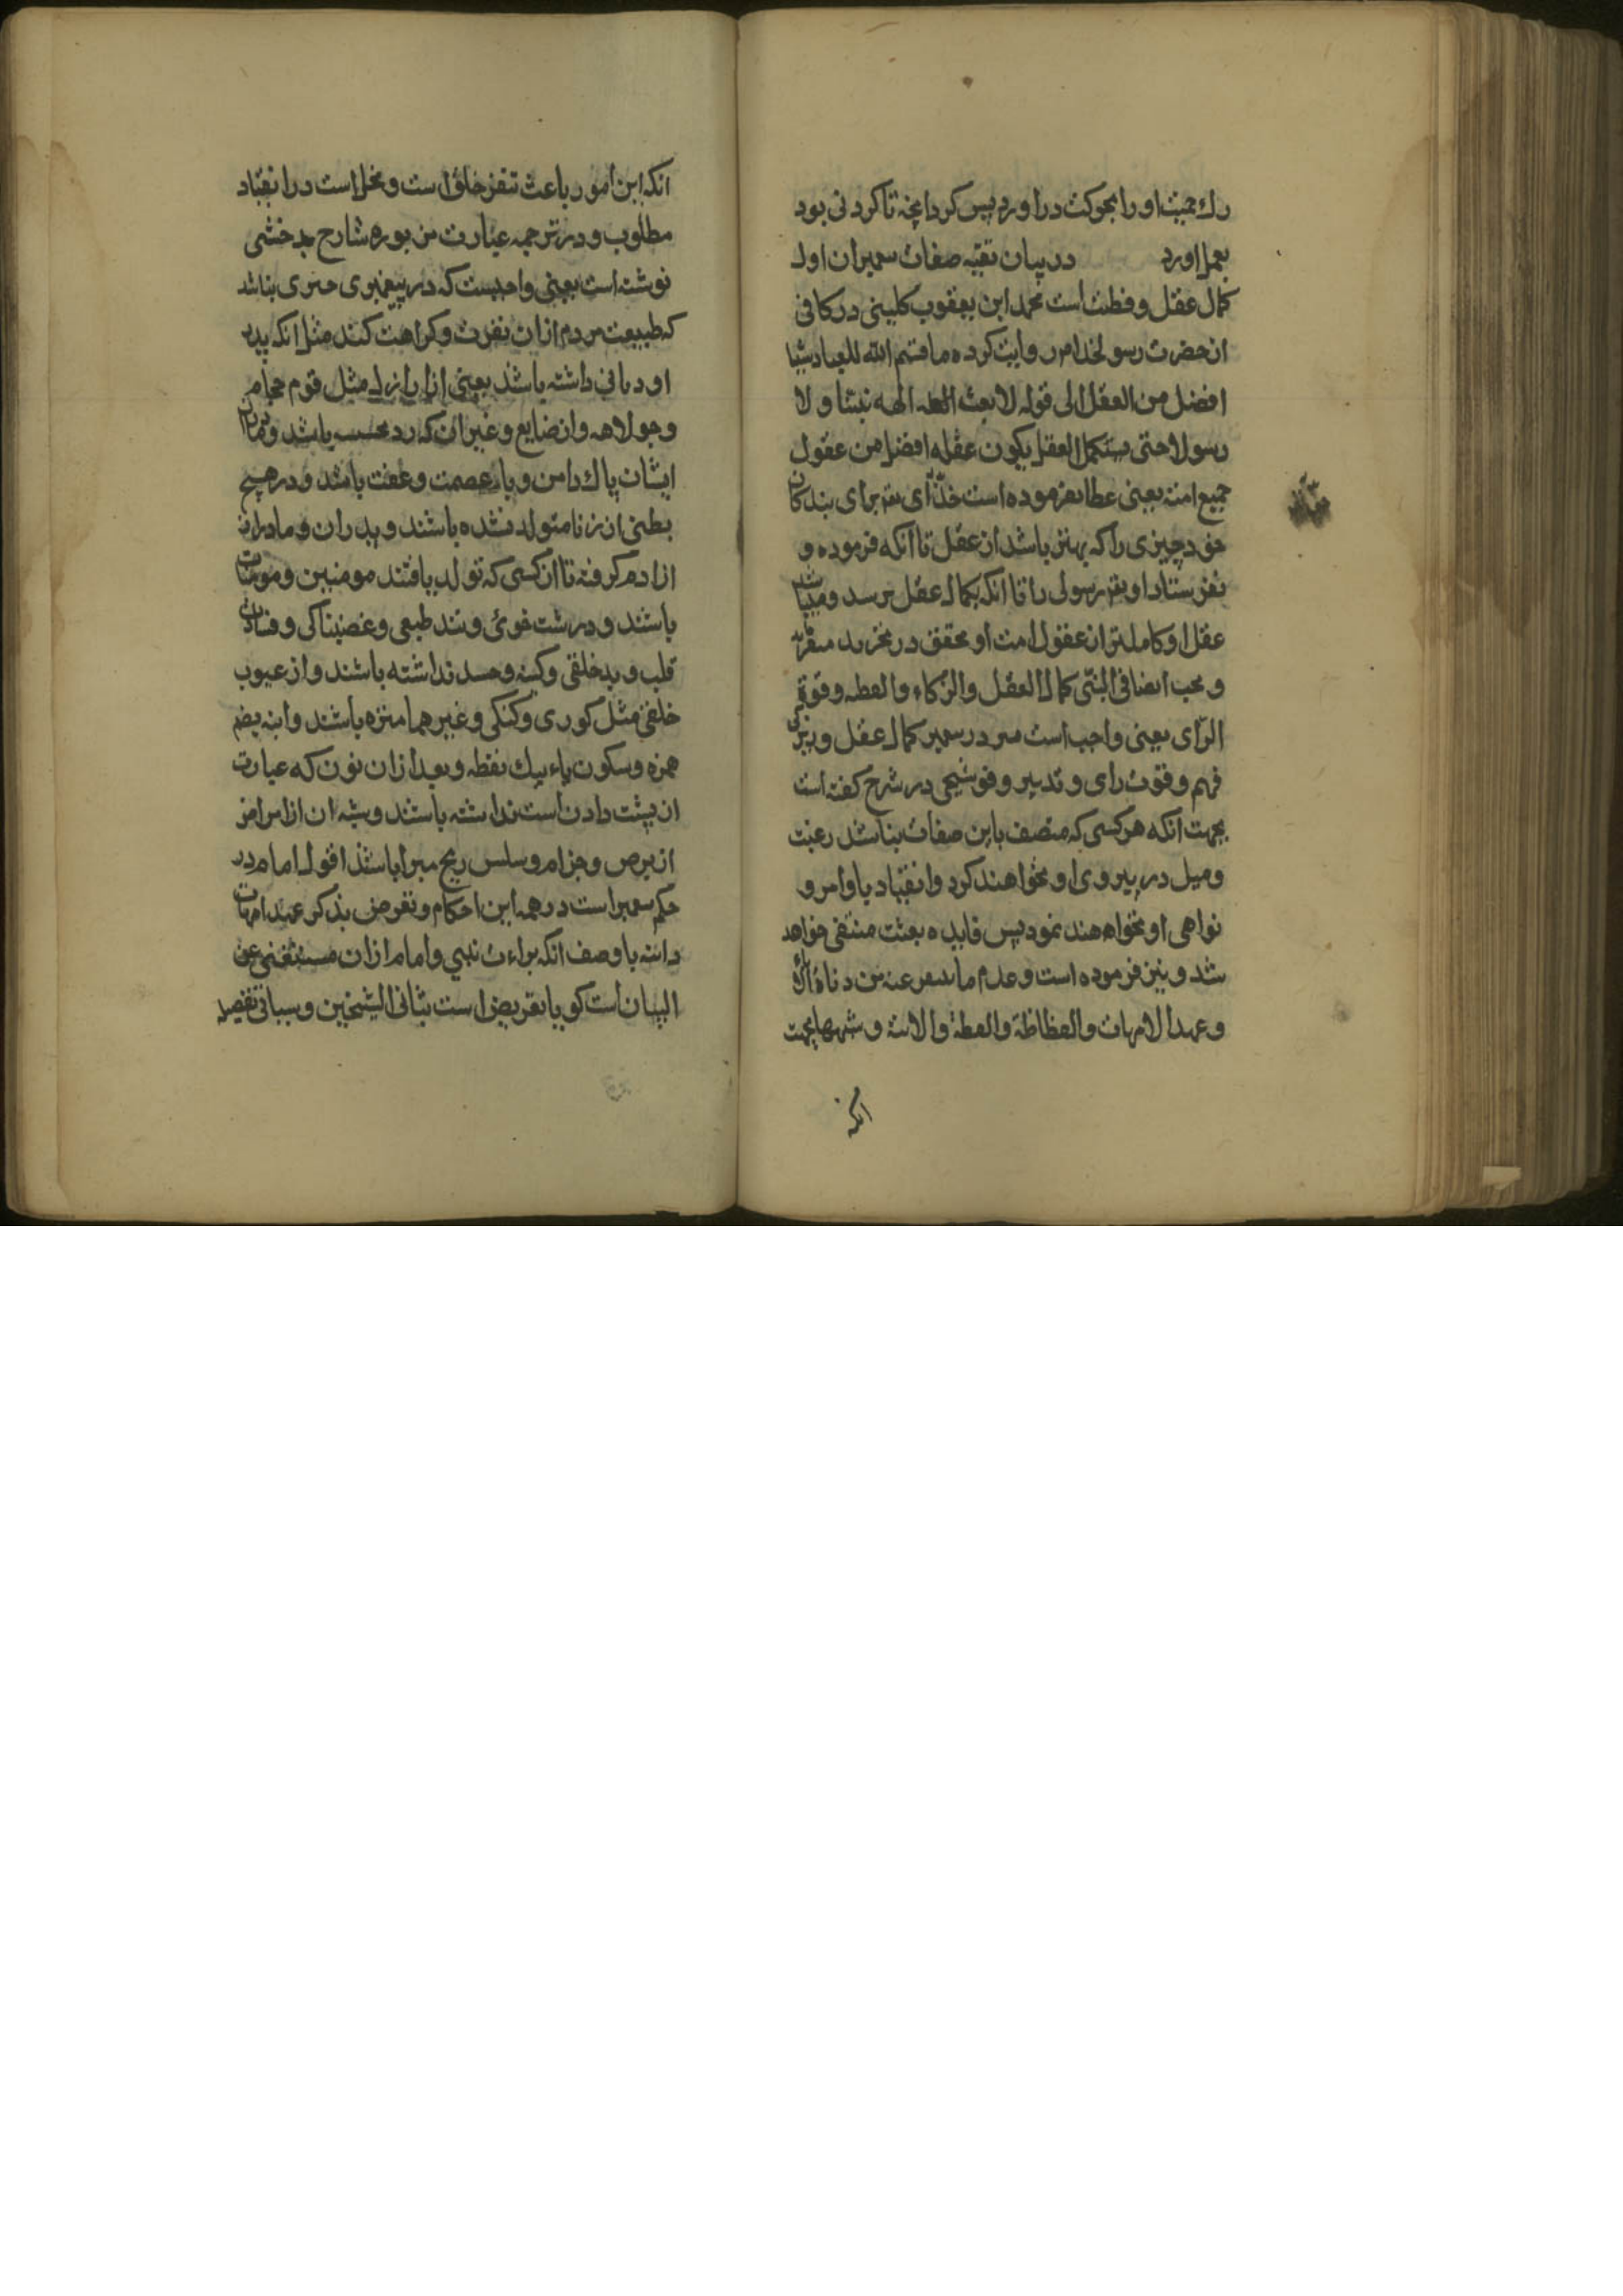 رك حميت او را بحركت در اورد پس كرد انچه تا كردنى بود
بعمل اورد در بيان بقيه صفات پيمبران اول
كمال عقل و فطنت است محمد ابن يعقوب كلينى در كافى
از حضرت رسولخدا م روايت كرده ما قسم الله للعباد شيئا
افضل من العقل الى قوله لا بعث الله نبيا و لا
رسولا حتى يستكمل العقل يكون عقله افضل من عقول
جميع امته يعنى عطا نفرموده است خداى براى بندكان
خود چيزى را كه بهتر باشد از عقل تا انكه فرموده و
نفرستاد او رسولى را تا انكه بكمال عقل برسد و ميباشد
عقل او كاملتر از عقول امت او محقق در تجريد
و يجب ايضا فى النبى كمال العقل و الزكاء و الفطنه و قوة
الراى يعنى واجب است در پيمبر كمال عقل و زيركى
فهم و قوت راى و تدبير و قوشجى در شرح كفته است
بجهت انكه هر كسى كه متصف باين صفات نباشد رغبت
و ميل در پيروى او نخواهند كرد و انقياد باوامر و
نواهى او نخواهند نمود پس فايده بعثت منتفى خواهد
شد و نيز فرموده است و عدم ما ينفر عنه من دناءة الاباء
و عهد الامهات و الفظاظة و الغلظة و الابنة و شبهها بجهت
انكه
انكه اين امور باعث تنفر خلق است و مخل است در انقياد
مطلوب و در ترجمه عبارت مزبوره شارح بدخشى
نوشته است يعنى واجبست كه در پيغمبرى چيزى نباشد
كه طبيعت مردم از ان نفرت و كراهت كند مثل انكه پدر
او دنائتى داشته باشد يعنى از اراذل مثل قوم حجام
و جولاهه و از ضايع و غير ان كه رد بحسب باشد و مادران
ايشان پاك دامن و با عصمت و عفت باشند و در هيچ
بطنى از زنا متولد نشده باشند و پدران و مادران
از ادم كرفته تا ان كسى كه تولد يافتند مومنين و مومنات
باشند و درشت خوئى و تند طبعى و غضبناكى و
قلب و بدخلقى و كينه و حسد نداشته باشند و از عيوب
خلقى مثل كورى و كنكى و غيرهما منزه باشند و ابنه بضم
همزه و سكون باء بيك نقطه و بعد از ان نون كه عبارت
از پشت دادن است نداشته باشند و شبه ان از امراض
از برص و جزام و سلس ريح مبرا باشند اقول امام در
حكم پيمبر است در همه اين احكام و تعرض بذكر عهد امهات
دانسته با وصف انكه براءت نبى و امام از ان مستغنى عن
البيان است كويا تعريض است بثانى الشيخين و سياتى تفصيله